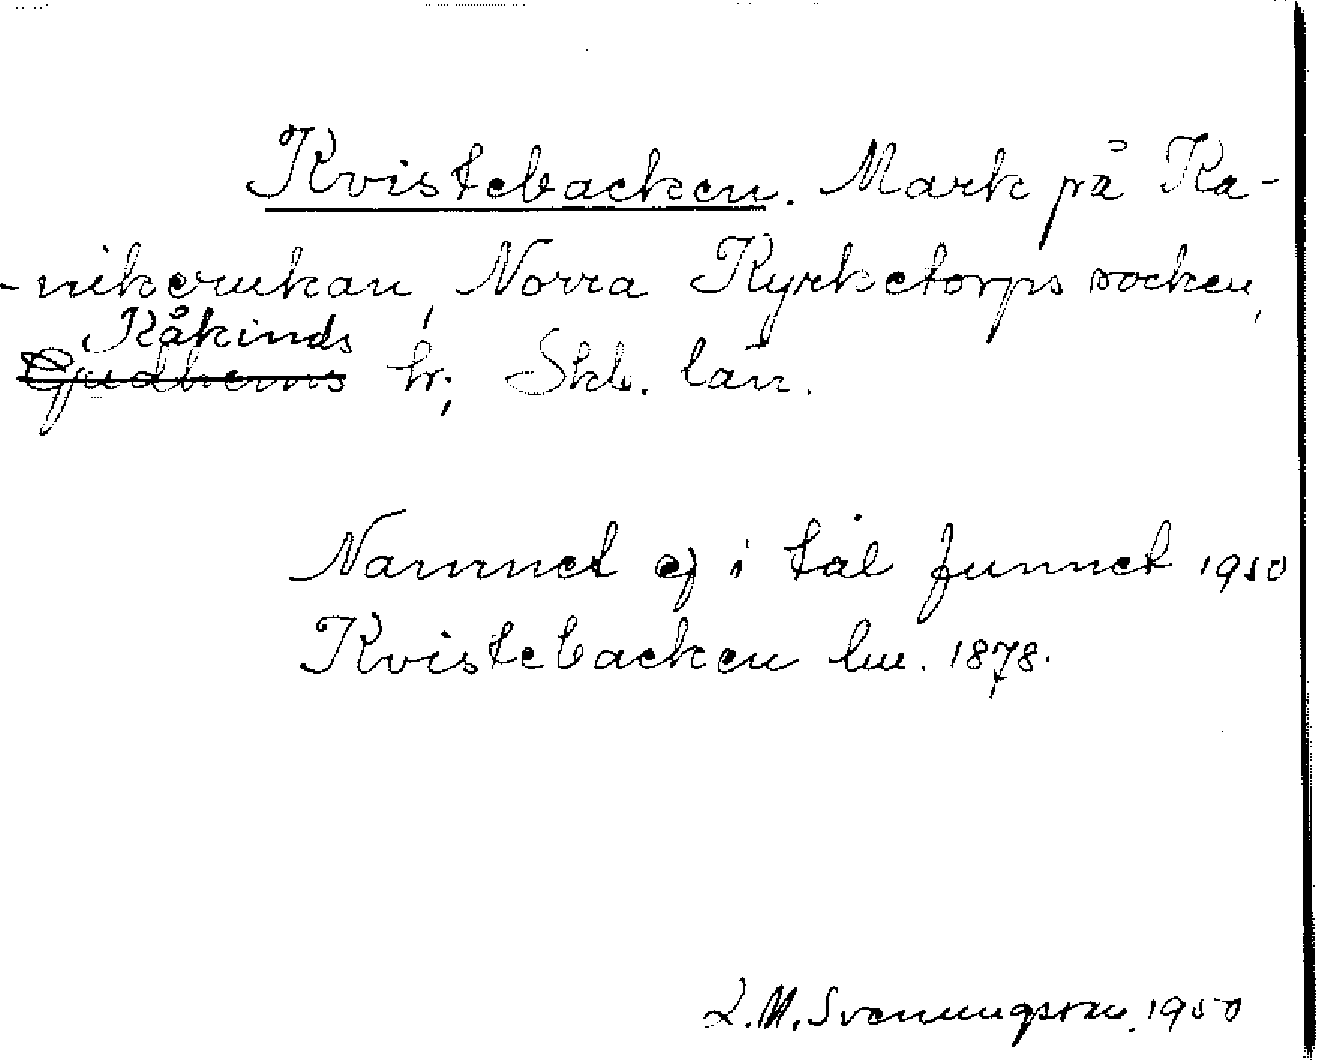 Kvistebacken. Mark på Ka-
-nikerukan, Norra Kyrketorps socken,
Kåkinds
Gudhems hr; Skb. län.
Namnet ej i tal funnet 1950
Kvistebacken lm. 1878.
L.M. Svenungsson. 1950